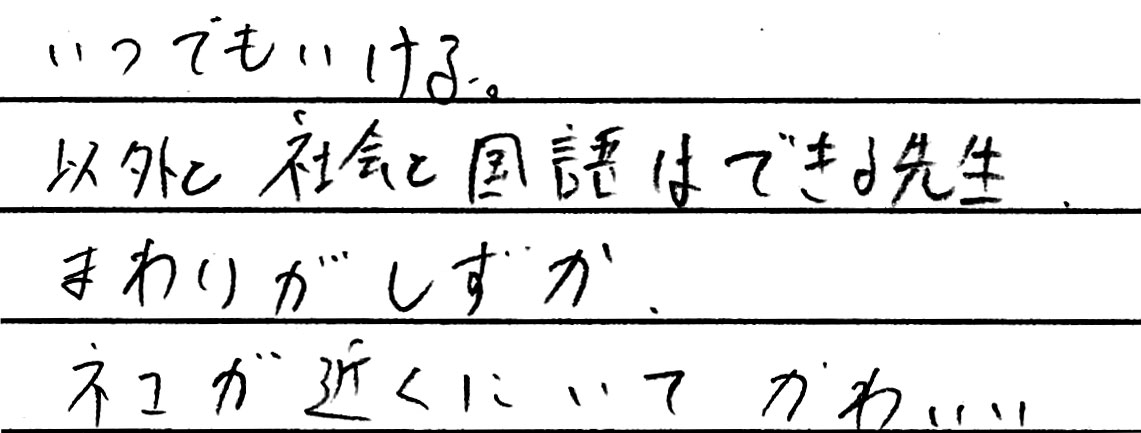 いつでもいける。
以外と社会と国語はできる先生.
まわりがしずか.
ネコが近くにいてかわいい